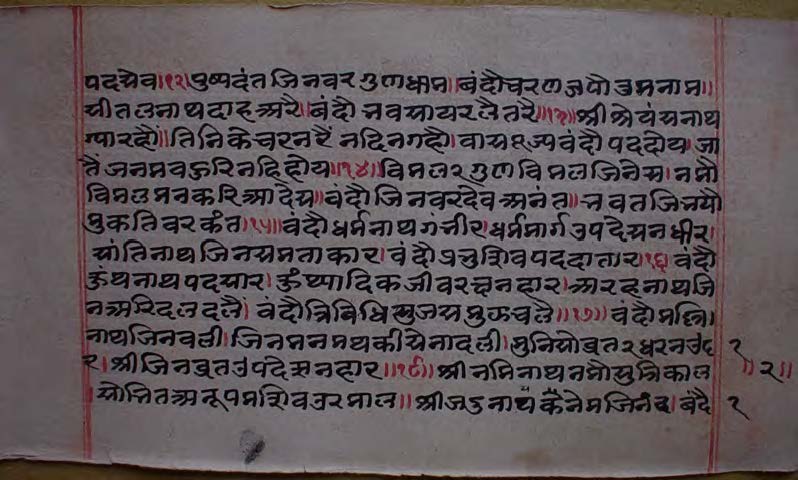 पदयेव॥१२॥पुष्पदंतजिनवरगुणधाम॥बंदौचरणजपोउमनाम॥
षीतलनाथदाहअरै॥बंदौनवसायरलैतरै॥१३॥श्रीश्रेयंयनाथ
ग्यारहौं॥तिनिकेचरनरैंनदिनगहौ॥वासपूज्यवंदौपददोय॥जा
तैंजनमवकुरिनहिहोय॥१४॥विमलरगुणविमलजिनेस॥नमौ
विमलमनकरिआदेय॥वंदौजिनवरदेवअनंत॥नवतजिनयौ
मुकतिवरकंत॥१५॥वंदौधर्मनाथगंनीर॥धर्ममार्गउपदेयनधीर॥
षांतिनाथजिनयमताकार॥वंदौप्रनुशिवपददातार॥१६॥वंदौ
कुंथनाथपदसार॥कुंथ्यादिकजीवरछनहार॥अरहनाथजि
नअरिदलदलै॥वंदौत्रिविधिसुजयमुकचलै॥१७॥वंदौमल्लि॥
नाथजिनवली॥जिनमनमथकीयेनादली॥मुनिसोब्रतरधरनउद १
र॥श्रीजिनब्रतउपदेसनहार॥१८॥श्रीनमिनाथनमोसुत्रिकाल ॥२॥
षोनितअनूपमशिवउरमाल॥श्रीजउनाथकैंनेमजिनंद॥बंदै १